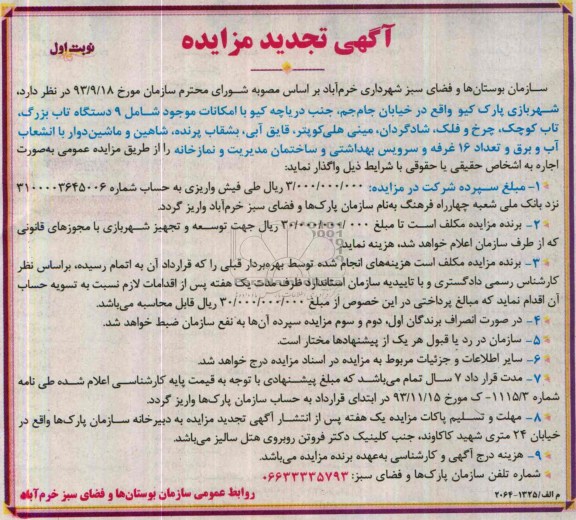 آگهی تجدید مزایده
نوبت اول
سازمان بوستان‌ها و فضای سبز شهرداری خرم‌آباد بر اساس مصوبه شورای محترم سازمان مورخ ۹۳/۹/۱۸ در نظر دارد،
شهربازی پارک کیو واقع در خیابان جام‌جم، جنب دریاچه کیو با امکانات موجود شامل ۹ دستگاه تاب بزرگ،
تاب کوچک، چرخ و فلک، شادگردان، مینی هلی‌کوپتر، قایق آبی، بشقاب پرنده، شاهین و ماشین‌دوار با انشعاب
آب و برق و تعداد ۱۶ غرفه و سرویس بهداشتی و ساختمان مدیریت و نمازخانه را از طریق مزایده عمومی به‌صورت
اجاره به اشخاص حقیقی یا حقوقی با شرایط ذیل واگذار نماید:
۱- مبلغ سپرده شرکت در مزایده: ۳/۰۰۰/۰۰۰/۰۰۰ ریال طی فیش واریزی به حساب شماره ۳۱۰۰۰۰۳۶۴۵۰۰۶
نزد بانک ملی شعبه چهارراه فرهنگ به‌نام سازمان پارک‌ها و فضای سبز خرم‌آباد واریز گردد.
۲- برنده مزایده مکلف است تا مبلغ ۳۰/۰۰۰/۰۰۰/۰۰۰ ریال جهت توسعه و تجهیز شهربازی با مجوزهای قانونی
که از طرف سازمان اعلام خواهد شد، هزینه نماید.
۳- برنده مزایده مکلف است هزینه‌های انجام شده توسط بهره‌بردار قبلی را که قرارداد آن به اتمام رسیده، براساس نظر
کارشناس رسمی دادگستری و با تاییدیه سازمان استاندارد ظرف مدت یک هفته پس از اقدامات لازم نسبت به تسویه حساب
آن اقدام نماید که مبالغ پرداختی در این خصوص از مبلغ ۳۰/۰۰۰/۰۰۰/۰۰۰ ریال قابل محاسبه می‌باشد.
۴- در صورت انصراف برندگان اول، دوم و سوم مزایده سپرده آن‌ها به نفع سازمان ضبط خواهد شد.
۵- سازمان در رد یا قبول هر یک از پیشنهادها مختار است.
۶- سایر اطلاعات و جزئیات مربوط به مزایده در اسناد مزایده درج خواهد شد.
۷- مدت قرار داد ۷ سال تمام می‌باشد که مبلغ پیشنهادی با توجه به قیمت پایه کارشناسی اعلام شده طی نامه
شماره ۱۱۱۵/۳- ک مورخ ۹۳/۱۱/۱۵ در ابتدای قرارداد به حساب سازمان پارک‌ها واریز گردد.
۸- مهلت و تسلیم پاکات مزایده یک هفته پس از انتشار آگهی تجدید مزایده به دبیرخانه سازمان پارک‌ها واقع در
خیابان ۲۴ متری شهید کاکاوند، جنب کلینیک دکتر فروتن روبروی هتل سالیز می‌باشد.
۹- هزینه درج آگهی و کارشناسی به‌عهده برنده مزایده می‌باشد.
شماره تلفن سازمان پارک‌ها و فضای سبز: ۰۶۶۳۳۳۳۵۷۹۳
روابط عمومی سازمان بوستان‌ها و فضای سبز خرم‌آباد
م الف/۱۳۲۵-۲۰۶۴